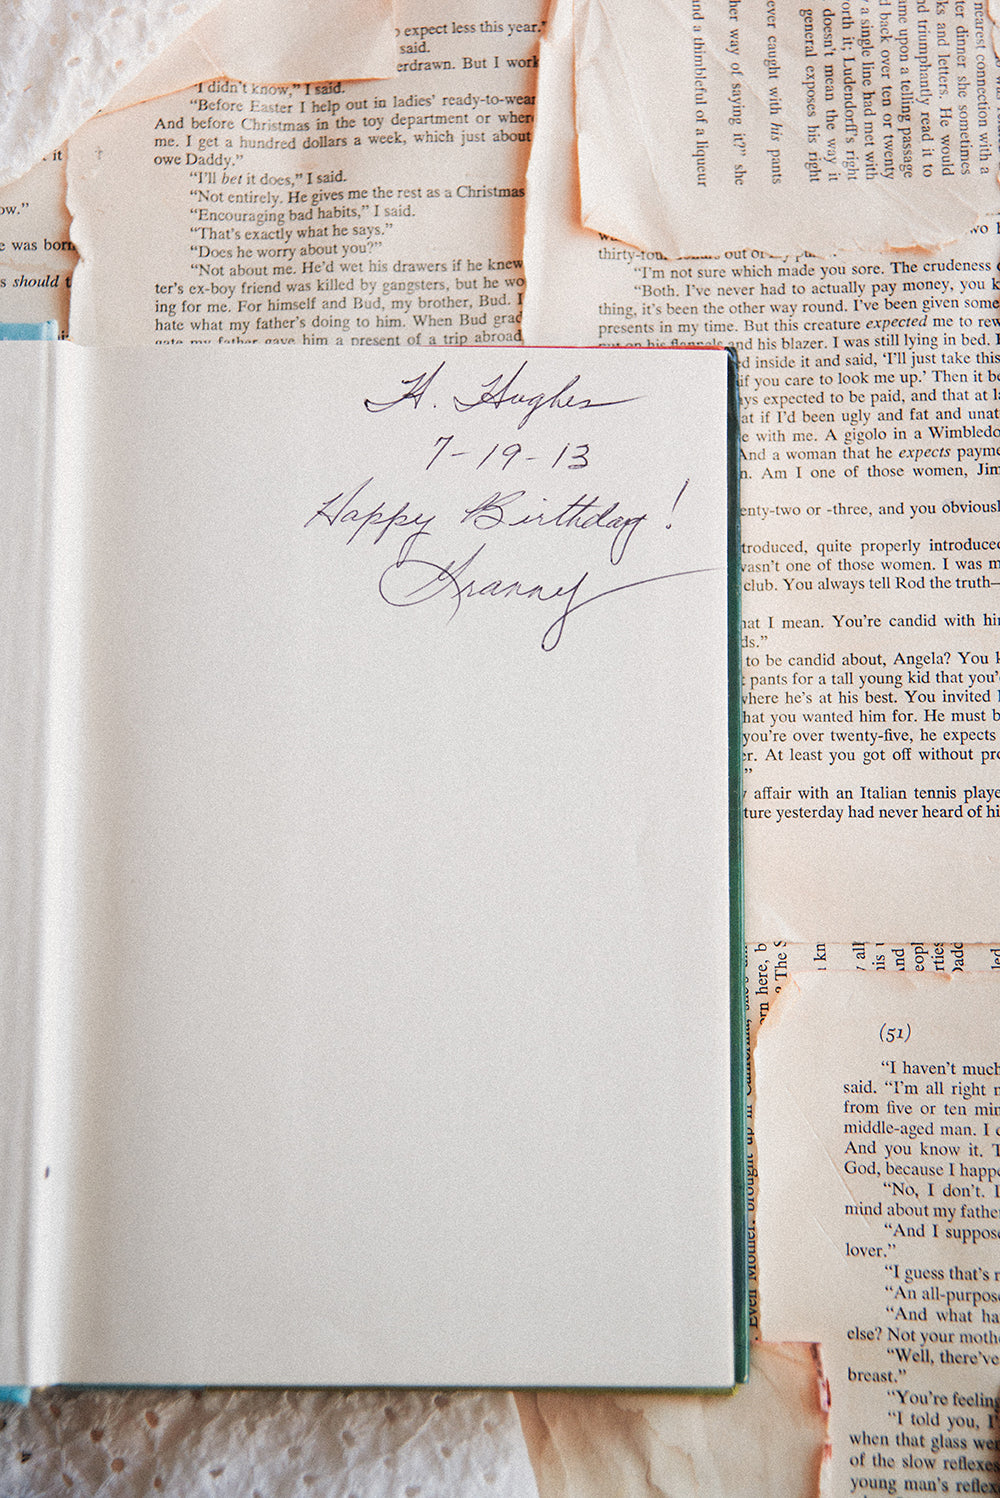 expect less this year."
said.
erdrawn. But I work
"I didn't know," I said.
"Before Easter I help out in ladies' ready-to-wear
And before Christmas in the toy department or where
me. I get a hundred dollars a week, which just about
owe Daddy."
"I'll bet it does," I said.
"Not entirely. He gives me the rest as a Christmas
"Encouraging bad habits," I said.
"That's exactly what he says."
"Does he worry about you?"
"Not about me. He'd wet his drawers if he knew
ter's ex-boy friend was killed by gangsters, but he wo
ing for me. For himself and Bud, my brother, Bud. I
hate what my father's doing to him. When Bud grad
gate my father gave him a present of a trip abroad
it
ow."
e was born
s should t
H. Hughes
7-19-13
Happy Birthday!
Granny
nearest connection with a
ter dinner she sometimes
ks and letters. He would
nd triumphantly read it to
ame upon a telling passage
d back over ten or twenty
a single line had met with
orth it; Ludendorff's right
doesn't mean the way it
general exposes his right
ever caught with his pants
her way of saying it?" she
nd a thimbleful of a liqueur
"I'm not sure which made you sore. The crudeness
"Both. I've never had to actually pay money, you k
thing, it's been the other way round. I've been given some
presents in my time. But this creature expected me to rew
put on his flannels and his blazer. I was still lying in bed.
d inside it and said, 'I'll just take this
if you care to look me up.' Then it be
ys expected to be paid, and that at la
at if I'd been ugly and fat and unat
e with me. A gigolo in a Wimbledo
And a woman that he expects payme
n. Am I one of those women, Jim
enty-two or -three, and you obviousl
troduced, quite properly introduced
wasn't one of those women. I was m
club. You always tell Rod the truth—
hat I mean. You're candid with hi
ds."
to be candid about, Angela? You k
pants for a tall young kid that you'
where he's at his best. You invited
hat you wanted him for. He must b
you're over twenty-five, he expects
er. At least you got off without pro
"
affair with an Italian tennis playe
ture yesterday had never heard of hi
orn here, b
? The S
kn
all
his
And
eopl
rties
Dadd
led
Even Mother, brought up in California, she's
(51)
"I haven't much
said. "I'm all right
from five or ten min
middle-aged man. I
And you know it. T
God, because I happe
"No, I don't. I
mind about my father
"And I suppose
lover."
"I guess that's
"An all-purpose
"And what ha
else? Not your moth
"Well, there've
breast."
"You're feeling
"I told you, I
when that glass wer
of the slow reflexes
young man's reflex